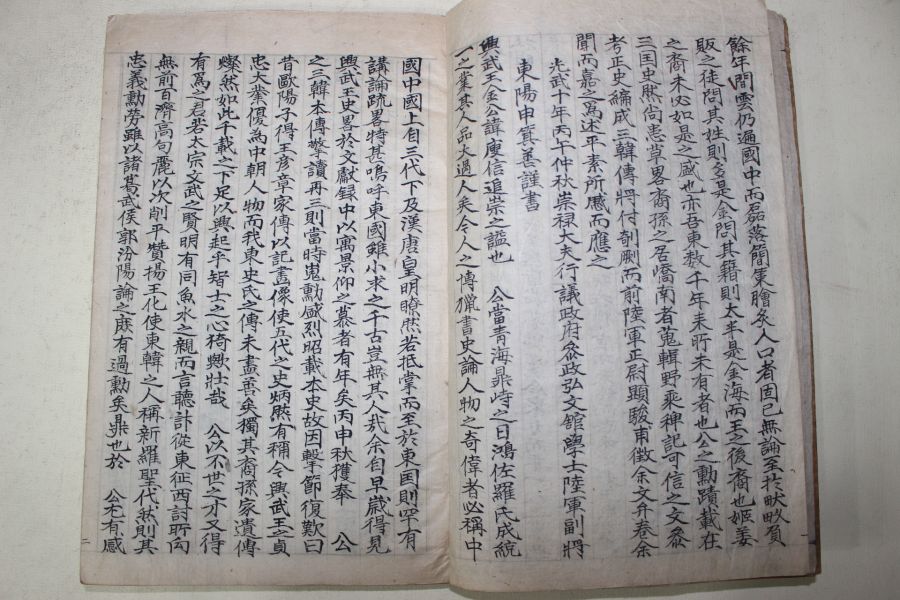 餘年間雲仍遍國中而磊落簡策膾炙人口者固已無論至於畎畝負
販之徒問其姓則多是金問其籍則太半是金海而王之後裔也姬姜
之裔未必如是之盛也亦吾東數千年來所未有者也公之勳蹟載在
三國史然尚恚草畧裔孫之居嶠南者蒐輯野乘稗記可信之文叅
考正史編成三韓傳將付剞劂而前陸軍正尉顯駿甫徵余文弁卷余
聞而嘉之爲述平素所感而應之
光武十年丙午仲秋崇祿大夫行議政府叅政弘文館學士陸軍副將
東陽申箕善謹書
興武王金公諱庾信追崇之謚也 公當青海鼎峙之日鴻佐羅氏成統
一之業其人品大過人矣今人之博獵書史論人物之奇偉者必稱中
國中國上自三代下及漢唐皇明瞭然若抵掌而至於東國則罕有
講論疏畧特甚嗚呼東國雖小求之千古豈無其人哉余自早歲得見
興武王史畧於文獻録中以寓景仰之慕者有年矣丙申秋獲奉 公
之三韓本傳擎讀再三則當時嵬勳盛烈昭載本史故因擊節復歎曰
昔歐陽子得王彦章家傳以記畫像使五代之史炳然有稱今興武王之貞
忠大業優爲中朝人物而我東史氏之傳未盡善矣獨其裔孫家遺傳
燦然如此千載之下足以興起乎智士之心猗歟壯哉 公以不世之才又得
有爲之君若太宗文武之賢明有同魚水之親而言聽計從東征西討所向
無前百濟高句麗以次削平贊揚王化使東韓之人稱新羅聖代然則其
忠義勳勞雖以諸葛武侯郭汾陽論之庶有過勳矣鼎也於 公尤有感